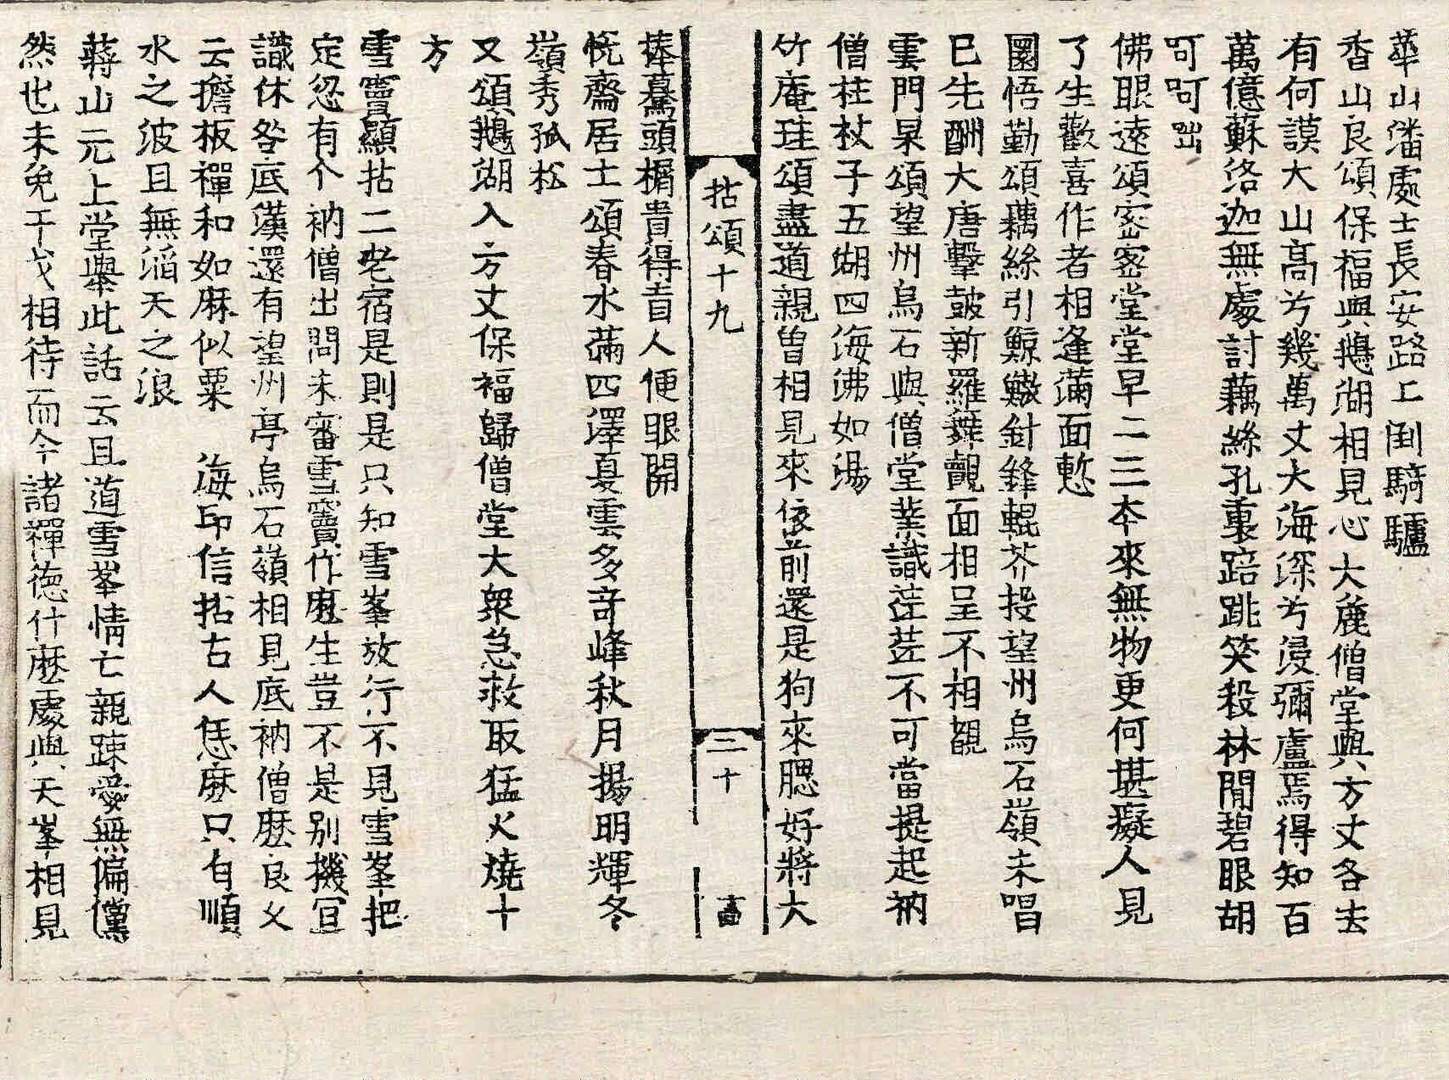 華山潘處士長安路上倒騎驢
香山良頌保福與鵝湖相見心大麁僧堂與方丈各去
有何謨大山高兮幾萬丈大海深兮浸彌盧焉得知百
萬億蘇洛迦無處討藕絲孔裏踣跳笑殺林間碧眼胡
呵呵咄
佛眼遠頌密密堂堂早二三本來無物更何堪癡人見
了生歡喜作者相逢滿面慙
圜悟勤頌藕絲引鯨鰲針鋒輥芥投望州烏石嶺未唱
已先酬大唐擊皷新羅舞覿面相呈不相覩
雲門杲頌望州烏石與僧堂業識茫茫不可當提起衲
僧柱杖子五湖四海沸如湯
竹庵珪頌盡道親曾相見來依前還是狗來腮好將大
拈頌十九
三十
棒驀頭楣貴得盲人便眼開
悅齋居士頌春水滿四澤夏雲多奇峰秋月揚明輝冬
嶺秀孤松
又頌鵝湖入方丈保福歸僧堂大衆急救取猛火燒十
方
雪竇顯拈二老宿是則是只知雪峯放行不見雪峯把
定忽有个衲僧出問未審雪竇作麽生豈不是別機冝
識休咎底漢還有望州亭烏石嶺相見底衲僧麽良久
云擔板禪和如麻似粟 海印信拈古人恁麽只有順
水之波且無滔天之浪
蔣山元上堂擧此話云且道雪峯情亡親踈愛無偏儻
然也未免干戈相待而今諸禪德什麽處與天峯相見